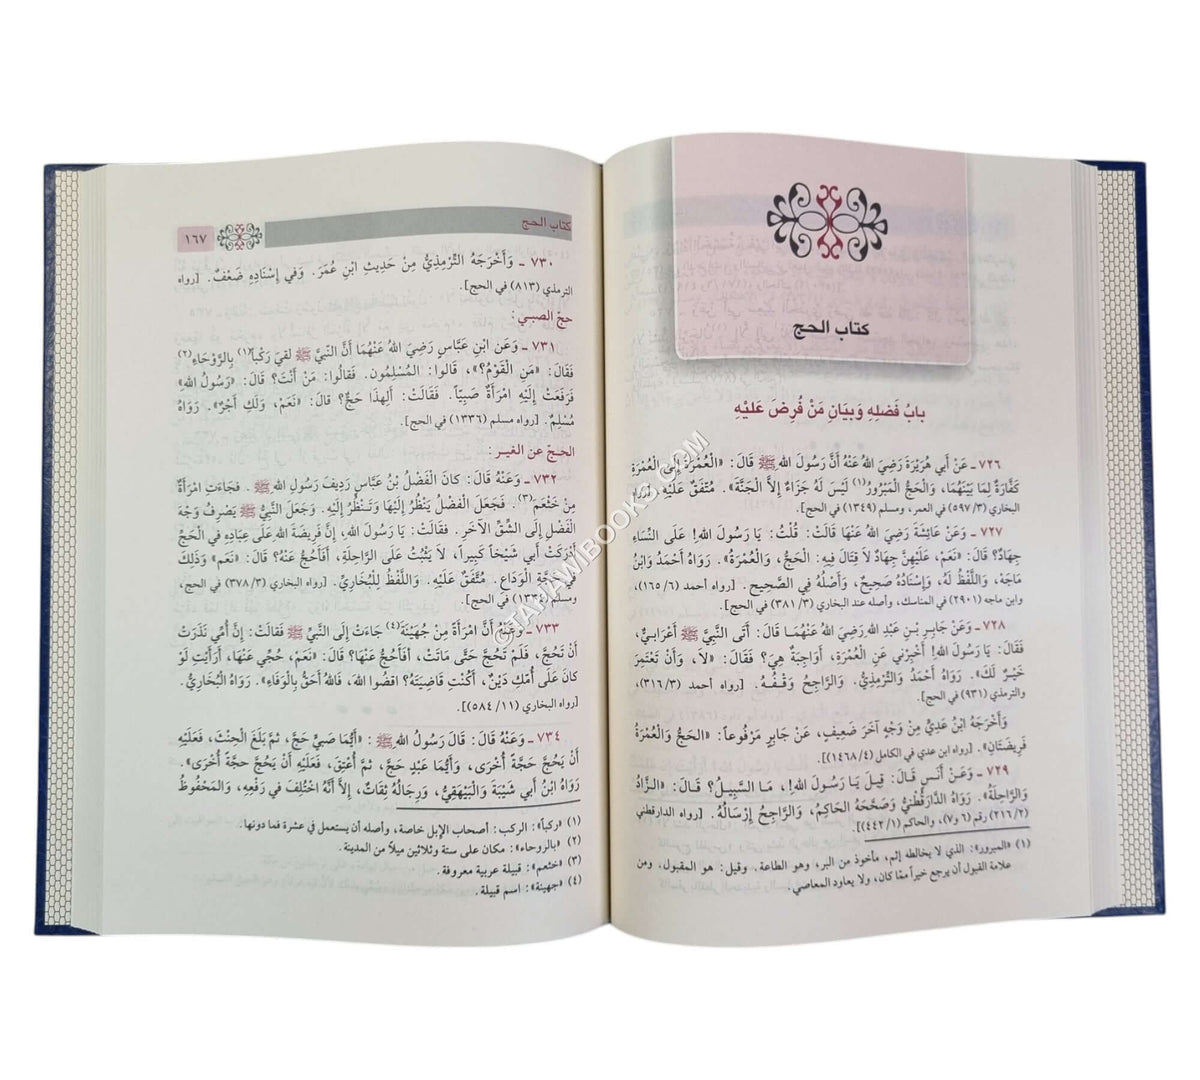 كتاب الحج
بابُ فَضلِهِ وَبيَانِ مَنْ فُرِضَ عَليْهِ
٧٢٦ ـ عَنْ أَبي هُرَيْرَةَ رَضِيَ اللهُ عَنْهُ أَنَّ رَسُولَ اللهِ ﷺ قَالَ: «الْعُمْرَةُ إِلَى الْعُمْرَةِ
كَفَّارَةٌ لِمَا بَيْنَهُمَا، وَالْحَجُّ الْمَبْرُورُ(١) لَيْسَ لَهُ جَزَاءٌ إلاَّ الْجَنَّةَ». مُتَّفَقٌ عَلَيْهِ. [رواه
البخاري (٣/٥٩٧) في العمرة، ومسلم (١٣٤٩) في الحج].
٧٢٧ ـ وَعَنْ عَائِشَةَ رَضِيَ اللهُ عَنْهَا قَالَتْ: قُلْتُ: يَا رَسُولَ اللهِ! عَلَى النِّسَاءِ
جِهَادٌ؟ قَالَ: «نَعَمْ، عَلَيْهِنَّ جِهَادٌ لاَ قِتَالَ فِيهِ: الْحَجُّ، وَالْعُمْرَةُ». رَوَاهُ أَحْمَدُ وَابْنُ
مَاجَهْ، وَاللَّفْظُ لَهُ، وَإسْنَادُهُ صَحِيحٌ، وَأَصْلُهُ فِي الصَّحِيحِ. [رواه أحمد (٦/١٦٥)،
وابن ماجه (٢٩٠١) في المناسك، وأصله عند البخاري (٣/٣٨١) في الحج].
٧٢٨ ـ وَعَنْ جَابِرِ بْنِ عَبْدِ اللهِ رَضِيَ اللهُ عَنْهُمَا قَالَ: أَتَى النَّبِيَّ ﷺ أَعْرَابيٌّ،
فَقَالَ: يَا رَسُولَ اللهِ! أَخْبِرْنِي عَنِ الْعُمْرَةِ، أَوَاجِبَةٌ هِيَ؟ فَقَالَ: «لاَ، وَأَنْ تَعْتَمِرَ
خَيْرٌ لَكَ». رَوَاهُ أَحْمَدُ وَالتِّرْمِذِيُّ. وَالرَّاجِحُ وَقْفُهُ. [رواه أحمد (٣/٣١٦)،
والترمذي (٩٣١) في الحج].
وَأَخْرَجَهُ ابْنُ عَدِيٍّ مِنْ وَجْهٍ آخَرَ ضَعِيفٍ، عَنْ جَابِرٍ مَرْفُوعاً: «الْحَجُّ وَالْعُمْرَةُ
فَرِيضَتَانِ». [رواه ابن عدي في الكامل (٤/١٤٦٨)].
٧٢٩ ـ وَعَنْ أَنَسٍ قَالَ: قِيلَ يَا رَسُولَ اللهِ!، مَا السَّبِيلُ؟ قَالَ: «الزَّادُ
وَالرَّاحِلَةُ». رَوَاهُ الدَّارَقُطْنِيُّ وَصَحَّحَهُ الْحَاكِمُ، وَالرَّاجِحُ إرْسَالُهُ. [رواه الدارقطني
(٢/٢١٦) رقم (٦ و٧)، والحاكم (١/٤٤٢)].
(١) «المبرور»: الذي لا يخالطه إثم، مأخوذ من البر، وهو الطاعة. وقيل: هو المقبول. ومن
علامة القبول أن يرجع خيراً ممّا كان، ولا يعاود المعاصي.
كتاب الحج
١٦٧
٧٣٠ ـ وَأَخْرَجَهُ التِّرْمِذِيُّ مِنْ حَدِيثِ ابْنِ عُمَرَ. وَفي إسْنَادِهِ ضَعْفٌ. [رواه
الترمذي (٨١٣) في الحج].
حجّ الصبي:
٧٣١ ـ وَعَنِ ابْنِ عَبَّاسٍ رَضِيَ اللهُ عَنْهُمَا أَنَّ النَّبِيَّ ﷺ لَقِيَ رَكْباً(١) بِالرَّوْحَاءِ(٢)
فَقَالَ: «مَنِ الْقَوْمُ؟»، قَالُوا: الْمُسْلِمُون. فَقَالُوا: مَنْ أَنْتَ؟ قَالَ: «رَسُولُ اللهِ»
فَرَفَعَتْ إلَيْهِ امْرَأَةٌ صَبِيّاً. فَقَالَتْ: أَلِهذَا حَجٌّ؟ قَالَ: «نَعَمْ، وَلَكِ أَجْرٌ». رَوَاهُ
مُسْلِمٌ. [رواه مسلم (١٣٣٦) في الحج].
الحَجّ عن الغير:
٧٣٢ ـ وَعَنْهُ قَالَ: كَانَ الْفَضْلُ بْنُ عَبَّاسٍ رَدِيفَ رَسُولِ اللهِ ﷺ. فَجَاءَتِ امْرَأَةٌ
مِنْ خَثْعَمَ(٣). فَجَعَلَ الْفَضْلُ يَنْظُرُ إلَيْهَا وَتَنْظُرُ إلَيْهِ. وَجَعَلَ النَّبِيُّ ﷺ يَصْرِفُ وَجْهَ
الْفَضْلِ إلَى الشِّقِّ الآخَرِ. فَقَالَتْ: يَا رَسُولَ اللهِ، إنَّ فَرِيضَةَ اللهِ عَلَى عِبَادِهِ في الْحَجِّ
أَدْرَكَتْ أَبِي شَيْخاً كَبِيراً، لاَ يَثْبُتُ عَلَى الرَّاحِلَةِ، أَفَأَحُجُّ عَنْهُ؟ قَالَ: «نَعَم» وَذَلِكَ
في حَجَّةِ الْوَدَاعِ. مُتَّفَقٌ عَلَيْهِ. وَاللَّفْظُ لِلْبُخَارِيِّ. [رواه البخاري (٣/٣٧٨) في الحج،
ومسلم (١٣٣٤) في الحج].
٧٣٣ ـ وَعَنْهُ أَنَّ امْرَأَةً مِنْ جُهَيْنَةَ(٤) جَاءَتْ إلَى النَّبِيِّ ﷺ فَقَالَتْ: إنَّ أُمِّي نَذَرَتْ
أَنْ تَحُجَّ، فَلَمْ تَحُجَّ حَتَّى مَاتَتْ، أَفَأَحُجُّ عَنْهَا؟ قَالَ: «نَعَمْ، حُجِّي عَنْهَا، أَرَأَيْتِ لَوْ
كَانَ عَلَى أُمِّكِ دَيْنٌ، أَكُنْتِ قَاضِيَتَهُ؟ اقضُوا اللهَ، فَاللهُ أَحَقُّ بِالْوَفَاءِ». رَوَاهُ الْبُخَارِيُّ.
[رواه البخاري (١١/٥٨٤)].
٧٣٤ ـ وَعَنْهُ قَالَ: قَالَ رَسُولُ اللهِ ﷺ: «أَيُّمَا صَبِيٍّ حَجَّ، ثمَّ بَلَغَ الْحِنْثَ، فَعَلَيْهِ
أَنْ يَحُجَّ حَجَّةً أُخْرَى، وَأَيُّمَا عَبْدٍ حَجَّ، ثمَّ أُعْتِقَ، فَعَلَيْهِ أَنْ يَحُجَّ حجَّةً أُخْرَى».
رَوَاهُ ابْنُ أَبي شَيْبَةَ وَالْبَيْهَقِيُّ، وَرِجَالُهُ ثِقَاتٌ، إلاَّ أَنَّهُ اخْتُلِفَ في رَفْعِهِ، وَالْمَحْفُوظُ
(١) «ركباً»: الركب: أصحاب الإبل خاصة، وأصله أن يستعمل في عشرة فما دونها.
(٢) «بالروحاء»: مكان على ستة وثلاثين ميلاً من المدينة.
(٣) «خثعم»: قبيلة عربية معروفة.
(٤) «جهينة»: اسم قبيلة.